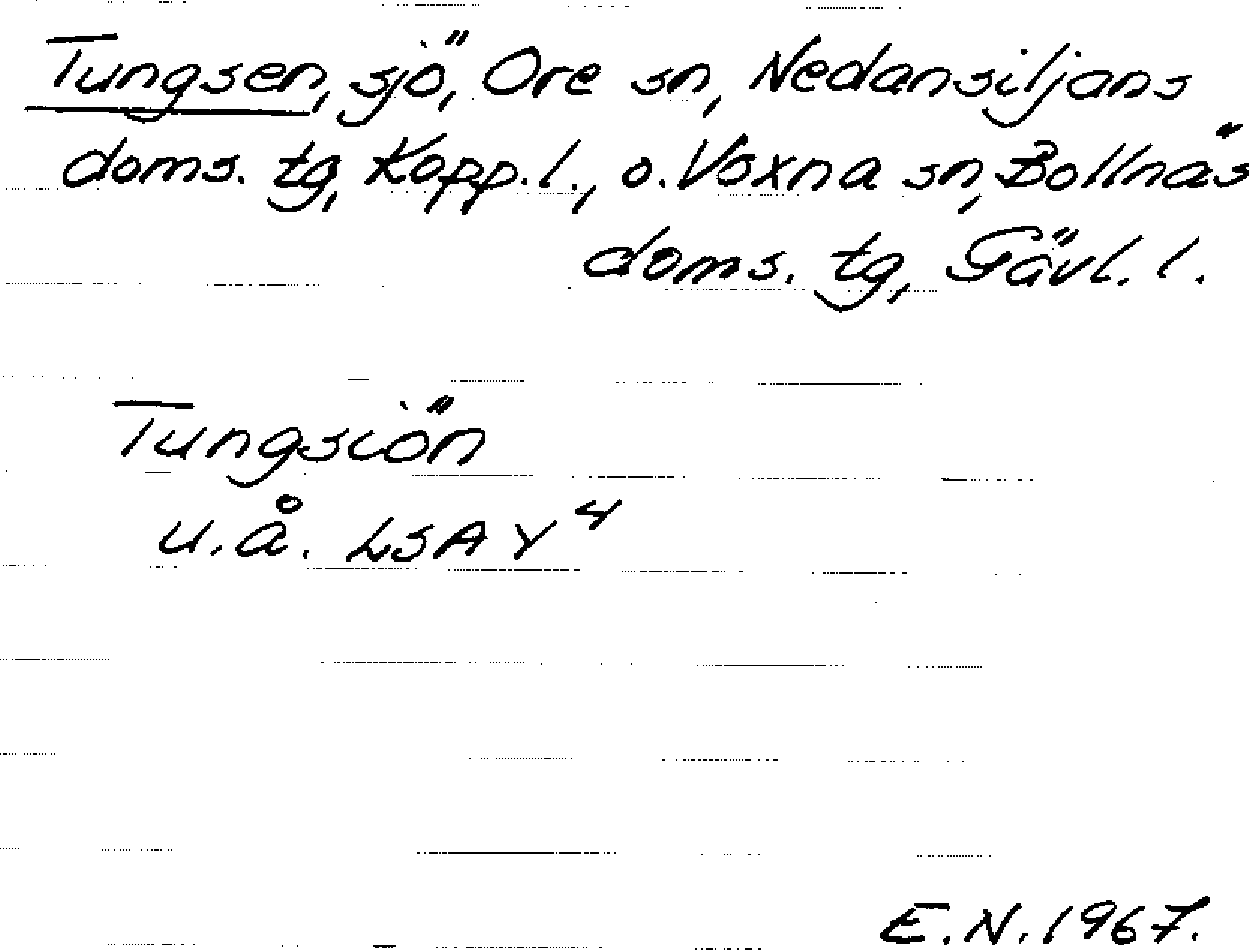 Tungsen, sjö, Ore sn, Nedansiljans
doms. tg, Kopp. l., o. Voxna sn, Bollnäs
doms. tg, Gävl. l.
Tungsiön
u. å. LSA Y 4
E. N. 1967.